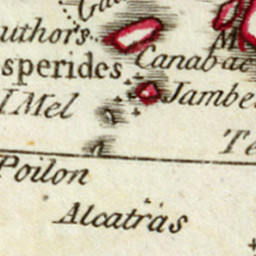 Gu
uthors
M
Canabac
sperides
I Mel
Jambe
Te
Poilon
Alcatras